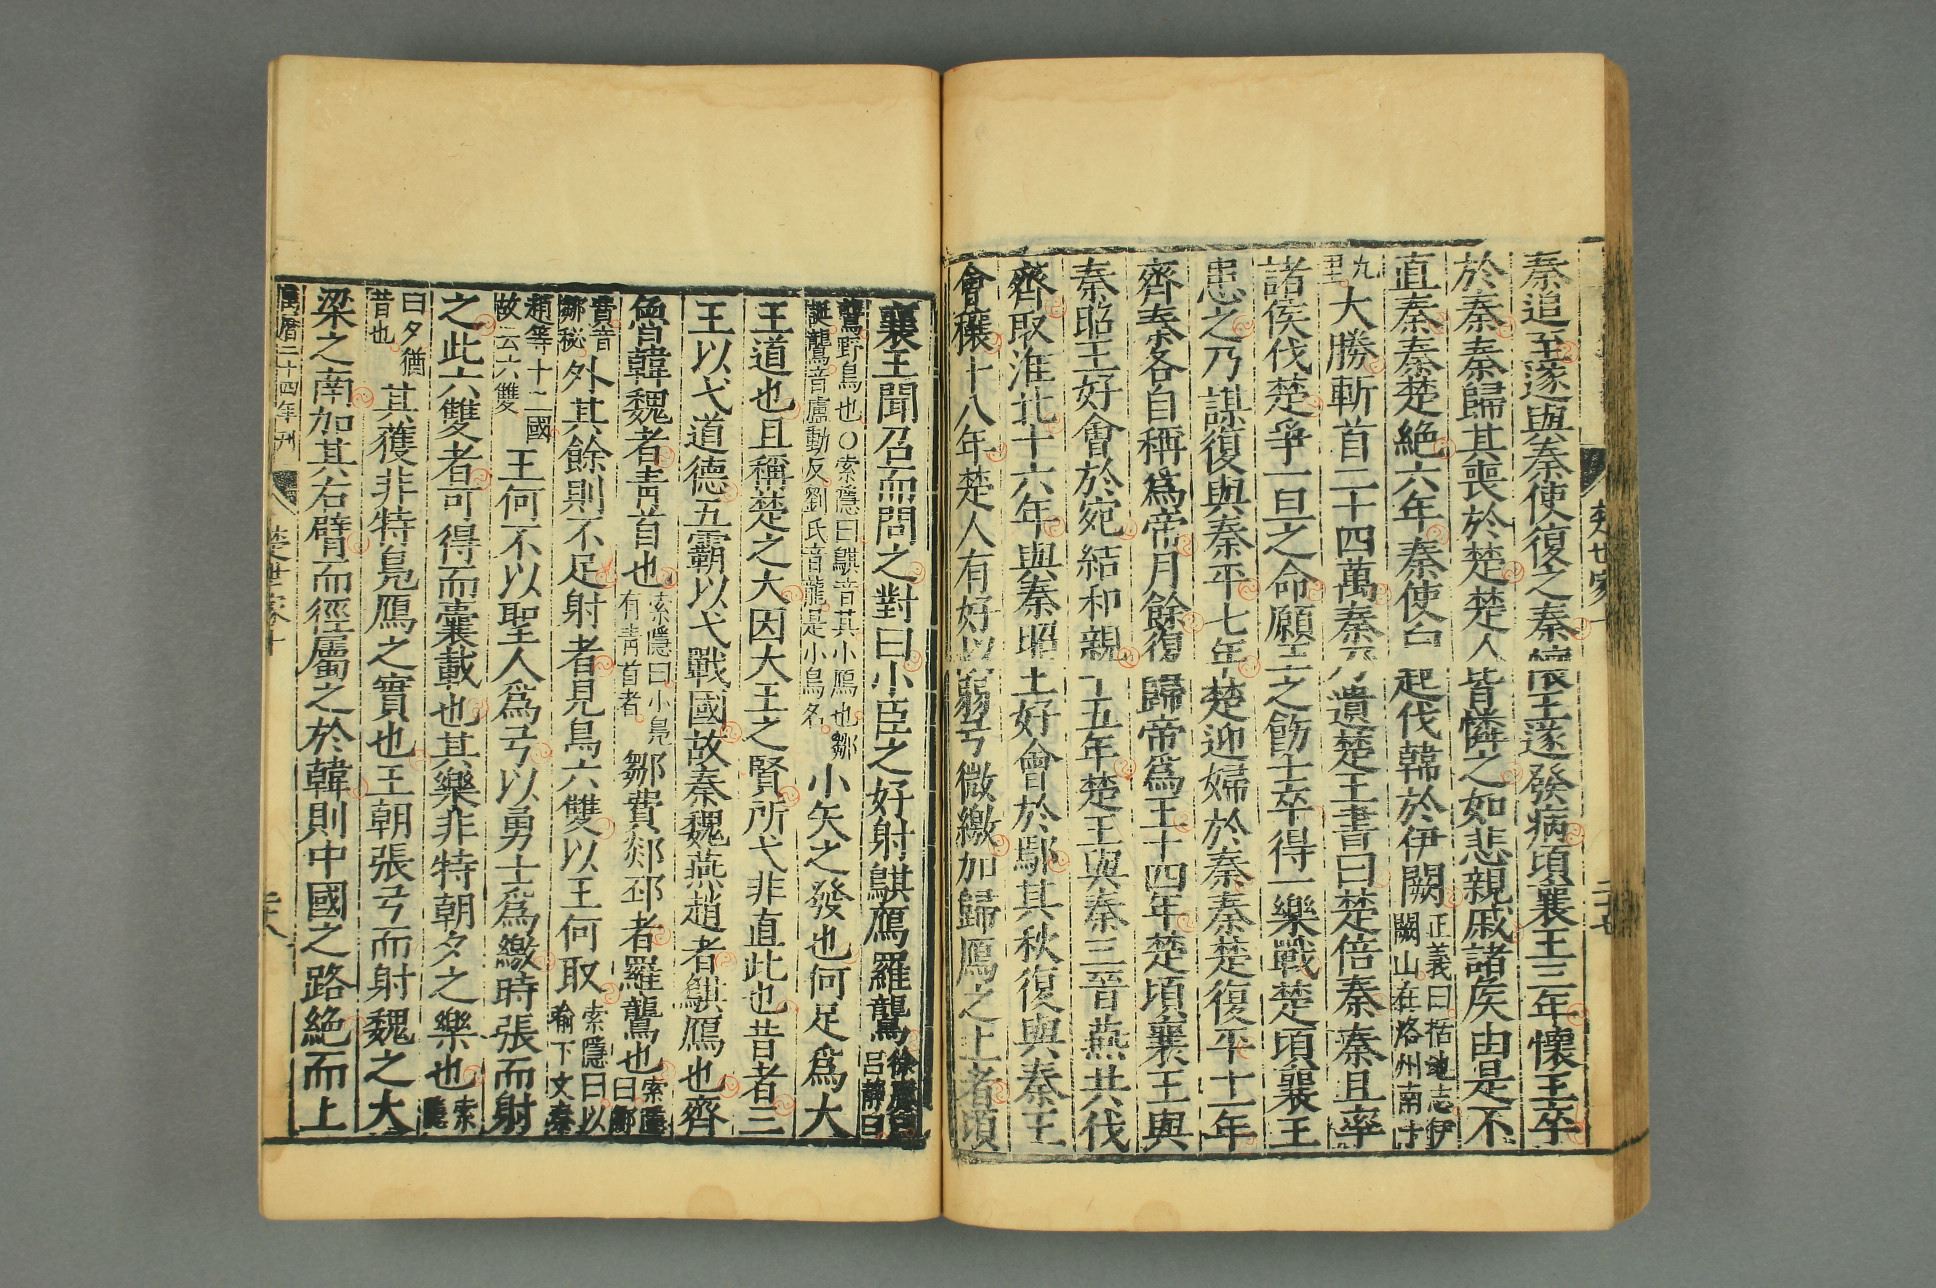 秦追至遂與秦使復之秦懷王遂發病頃襄王三年懷王卒
於秦秦歸其喪於楚楚人皆憐之如悲親戚諸侯由是不
直秦秦楚絶六年秦使白起伐韓於伊闕正義曰括地志伊闕山在洛州南十
九里大勝斬首二十四萬秦乃遺楚王書曰楚倍秦秦且率
諸侯伐楚爭一旦之命願王之飭士卒得一樂戰楚頃襄王
患之乃謀復與秦平七年楚迎婦於秦秦楚復平十一年
齊秦各自稱爲帝月餘復歸帝爲王十四年楚頃襄王與
秦昭王好會於宛結和親十五年楚王與秦三晉燕共伐
齊取淮北十六年與秦昭王好會於鄢其秋復與秦王
會穰十八年楚人有好以弱弓微繳加歸鴈之上者頃
楚世家十
二十七
襄王聞召而問之對曰小臣之好射鶀鴈羅鸗徐廣曰呂靜曰
鸗野鳥也○索隱曰鶀音其小鴈也鄒誕鸗音盧動反劉氏音龍是小鳥名小矢之發也何足爲大
王道也且稱楚之大因大王之賢所弋非直此也昔者三
王以弋道德五霸以弋戰國故秦魏燕趙者鶀鴈也齊
魯韓魏者青首也索隱曰小鳧有青首者鄒費郯邳者羅鸗也索隱曰鄒
費音鄒祕外其餘則不足射者見鳥六雙以王何取索隱曰以喻下文秦
趙等十二國故云六雙王何不以聖人爲弓以勇士爲繳時張而射
之此六雙者可得而囊載也其樂非特朝夕之樂也索隱
曰夕猶昔也其獲非特鳧鴈之實也王朝張弓而射魏之大
梁之南加其右臂而徑屬之於韓則中國之路絶而上
萬曆二十四年刋
楚世家十
二十八